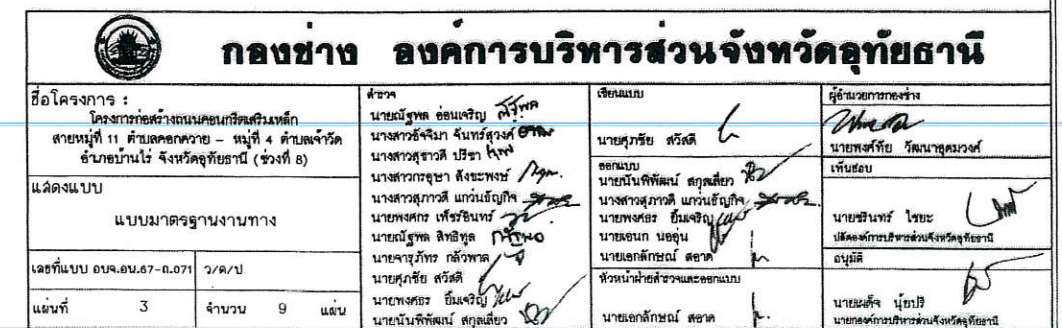 กองช่าง องค์การบริหารส่วนจังหวัดอุทัยธานี
ชื่อโครงการ :
โครงการก่อสร้างถนนคอนกรีตเสริมเหล็ก
สายหมู่ที่ 11 ตำบลคอกควาย - หมู่ที่ 4 ตำบลเจ้าวัด
อำเภอบ้านไร่ จังหวัดอุทัยธานี (ช่วงที่ 8)
แสดงแบบ
แบบมาตรฐานงานทาง
เลขที่แบบ อบจ.อน.67-ถ.071 ว/ด/ป
แผ่นที่ 3 จำนวน 9 แผ่น
สำรวจ
นายณัฐพล อ่อนเจริญ
นางสาวอัจจิมา จันทร์สุวงศ์
นางสาวสุชาวดี ปรีชา
นางสาวกรอุษา สังขะพงษ์
นางสาวสุภาวดี แกว่นธัญกิจ
นายพงศกร เพ็ชรอินทร์
นายณัฐพล สิทธิทูล
นายจารุภัทร กลัวพาล
นายศุภชัย สวัสดี
นายพงศธร ยิ้มเจริญ
นายนันพิพัฒน์ สกุลเลี่ยว
เขียนแบบ
นายศุภชัย สวัสดี
ออกแบบ
นายนันพิพัฒน์ สกุลเลี่ยว
นางสาวสุภาวดี แกว่นธัญกิจ
นายพงศธร ยิ้มเจริญ
นายเอนก นออุ่น
นายเอกลักษณ์ สอาด
หัวหน้าฝ่ายสำรวจและออกแบบ
นายเอกลักษณ์ สอาด
ผู้อำนวยการกองช่าง
นายพงศ์ทัย วัฒนาอุดมวงศ์
เห็นชอบ
นายชรินทร์ ไชยะ
ปลัดองค์การบริหารส่วนจังหวัดอุทัยธานี
อนุมัติ
นายเผด็จ นุ้ยปรี
นายกองค์การบริหารส่วนจังหวัดอุทัยธานี